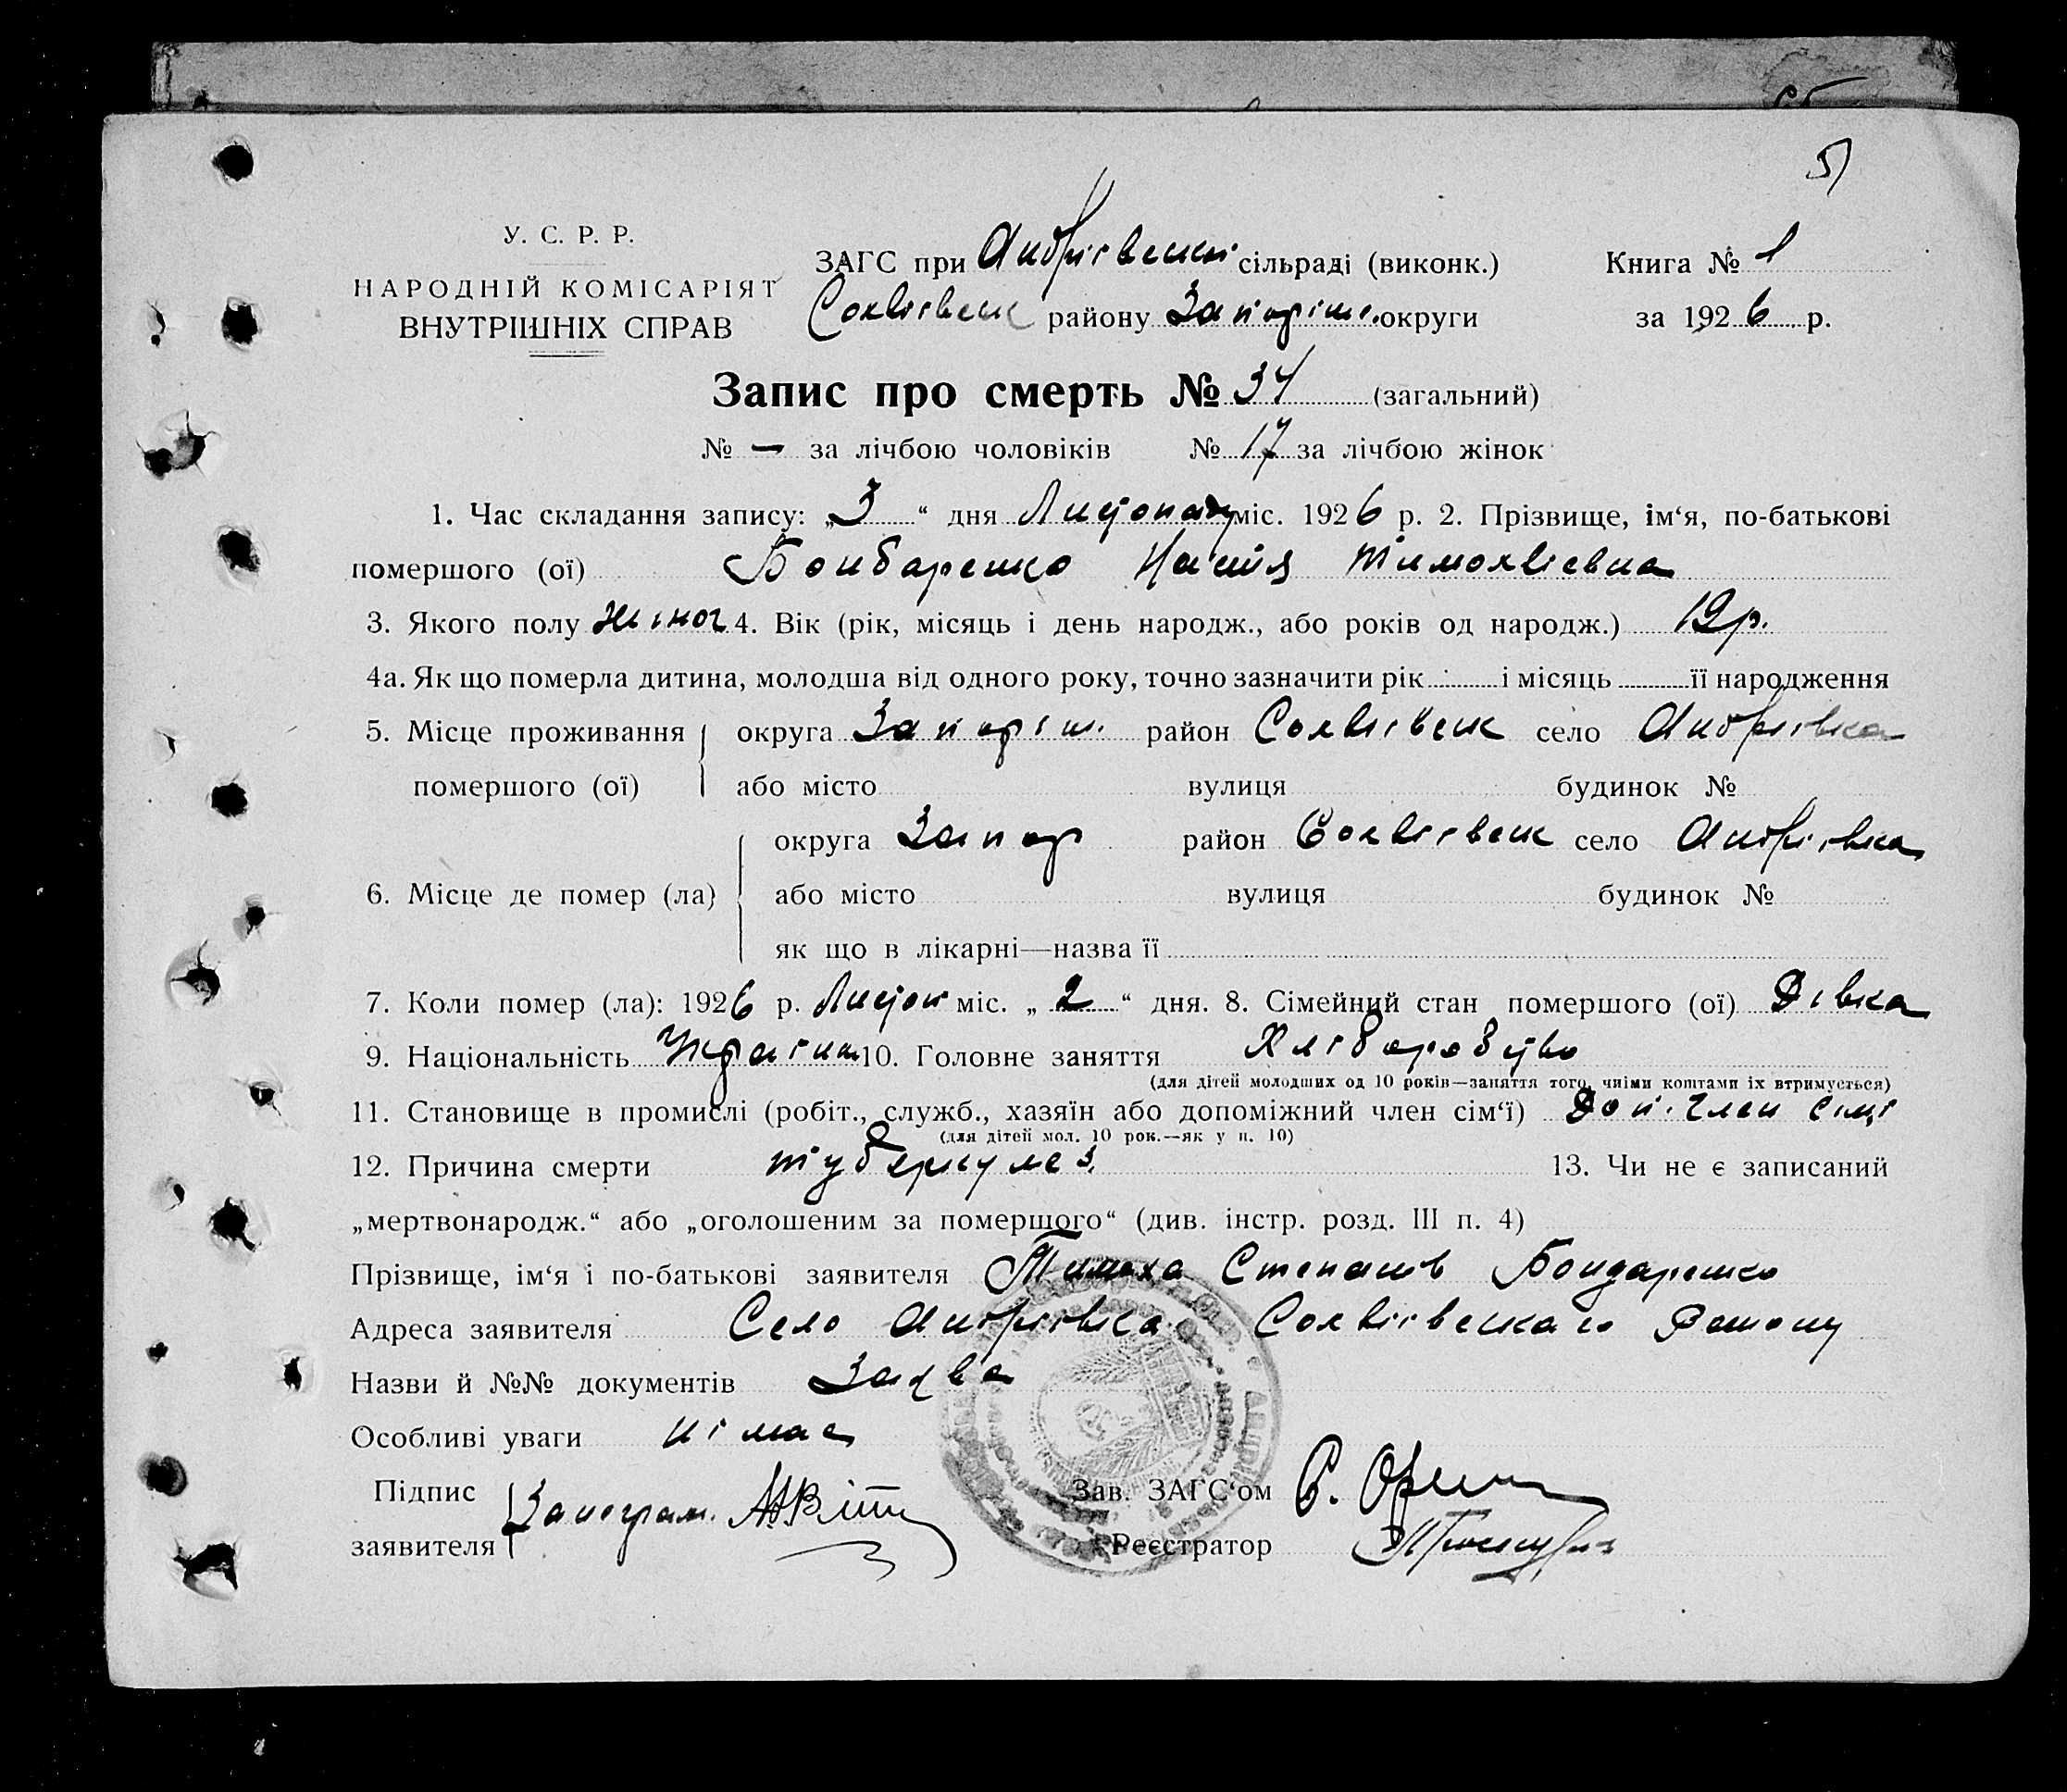 У. С. Р. Р.
НАРОДНІЙ КОМІСАРІЯТ
ВНУТРІШНІХ СПРАВ
ЗАГС при Андрієвській сільраді (виконк.)
Софієвськ району Запоріш. округи
Книга № 1
за 1926 р.
Запис про смерть № 34 (загальний)
№ — за лічбою чоловіків № 17 за лічбою жінок
1. Час складання запису: „3“ дня Листопаду міс. 1926 р. 2. Прізвище, ім‘я, по-батькові
помершого (ої) Бондаренко Настя
3. Якого полу жіноч 4. Вік (рік, місяць і день народж., або років од народж.) 19 р.
4а. Як що померла дитина, молодша від одного року, точно зазначити рік і місяць її народження
5. Місце проживання округа Запоріш. район село Андрівка
помершого (ої) або місто вулиця будинок №
округа Запор район село Андрівка
6. Місце де помер (ла) або місто вулиця будинок №
як що в лікарні—назва її
7. Коли помер (ла): 1926 р. Листоп міс. „2“ дня. 8. Сімейний стан помершого (ої) Дівка
9. Національність 10. Головне заняття Хліборобство
(для дітей молодших од 10 років—заняття того, чиїми коштами їх втримується)
11. Становище в промислі (робіт., служб., хазяїн або допоміжний член сім‘ї) Доп. член сімї
(для дітей мол. 10 рок.—як у п. 10)
12. Причина смерти туберкулез. 13. Чи не є записаний
„мертвонародж.“ або „оголошеним за помершого“ (див. інстр. розд. III п. 4)
Прізвище, ім‘я і по-батькові заявителя Тимоха Степанів Бондаренко
Адреса заявителя Село Андрівка
Назви й №№ документів Заява
Особливі уваги німає
Підпис
заявителя Занеграм.
Зав. ЗАГС‘ом
Реєстратор